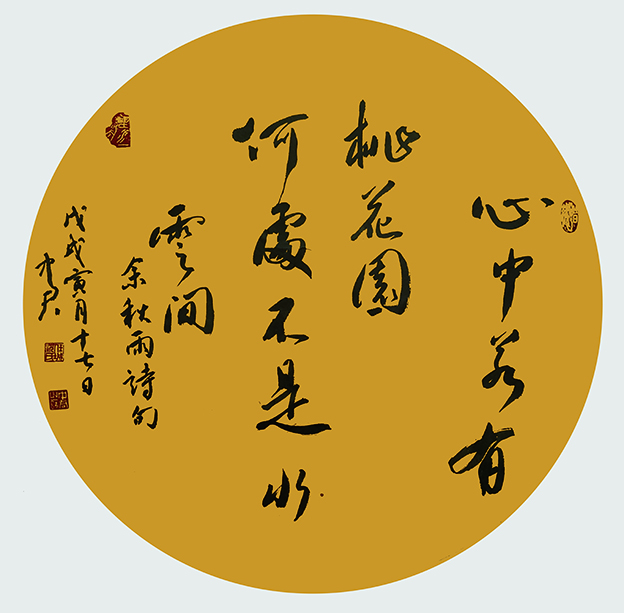 心中若有
桃花園
何處不是水
雲間
余秋雨詩句
戊戌寅月十七日